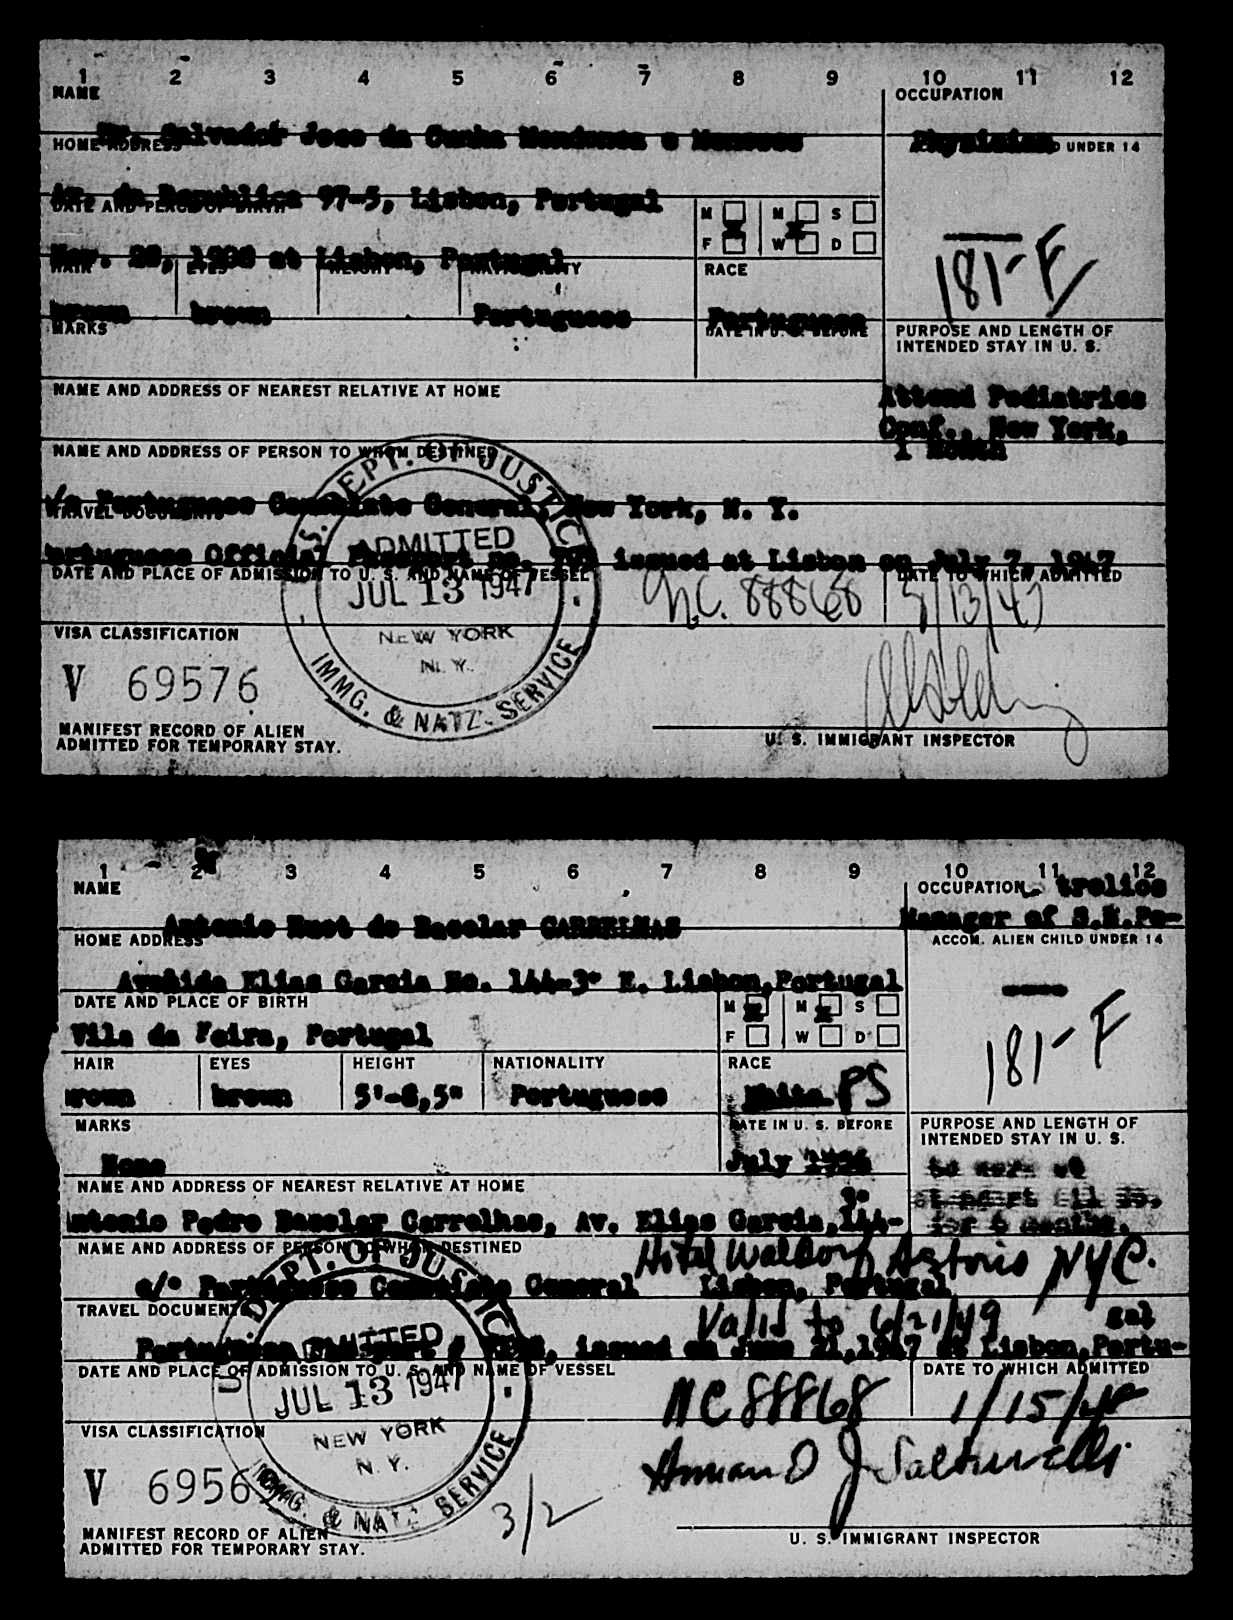 1 2 3 4 5 6 7 8 9 10 11 12
NAME OCCUPATION
Dr. Salvador Jose da Cunha Mendonca e Menezes Physician
HOME ADDRESS UNDER 14
Av. da Republica 97-5, Lisbon, Portugal
DATE AND PLACE OF BIRTH M M S
F W D
Nov. at Lisbon, Portugal
HAIR EYES HEIGHT NATIONALITY RACE
181-F
brown brown Portuguese Portuguese
MARKS DATE IN U. S. BEFORE PURPOSE AND LENGTH OF
INTENDED STAY IN U. S.
NAME AND ADDRESS OF NEAREST RELATIVE AT HOME
Attend Pediatrics
Conf., New York,
1 Month
NAME AND ADDRESS OF PERSON TO WHOM DESTINED
c/o Portuguese Consulate General, New York, N. Y.
TRAVEL DOCUMENTS
Portuguese Official Passport no. issued at Lisbon on July 7, 1947
DATE AND PLACE OF ADMISSION TO U. S. AND NAME OF VESSEL DATE TO WHICH ADMITTED
N.C. 88868 8/13/47
U. S. DEPT. OF JUSTICE
ADMITTED
JUL 13 1947
NEW YORK
N. Y.
IMMG. & NATZ. SERVICE
VISA CLASSIFICATION
V 69576
MANIFEST RECORD OF ALIEN
ADMITTED FOR TEMPORARY STAY.
U. S. IMMIGRANT INSPECTOR
1 2 3 4 5 6 7 8 9 10 11 12
NAME OCCUPATION trolios
Antonio Huet de Bacelar CARRELHAS Manager of S.N.Pe-
HOME ADDRESS ACCOM. ALIEN CHILD UNDER 14
Avenida Elias Garcia No. 144-3º E. Lisbon,Portugal
DATE AND PLACE OF BIRTH M M S
F W D
Vila da Feira, Portugal
181-F
HAIR EYES HEIGHT NATIONALITY RACE
brown brown 5'-8,5" Portuguese White PS
MARKS DATE IN U. S. BEFORE PURPOSE AND LENGTH OF
INTENDED STAY IN U. S.
None July
NAME AND ADDRESS OF NEAREST RELATIVE AT HOME
for 6 months.
3º
Antonio Pedro Bacelar Carrelhas, Av. Elias Garcia,144-
NAME AND ADDRESS OF PERSON TO WHOM DESTINED
Hotel Waldorf Astoria NYC.
c/o Portuguese Consulate General Lisbon, Portugal
TRAVEL DOCUMENTS
Valid to 6/21/49 gal
Portuguese Passport # issued on June 21,1947 at Lisbon,Portu-
DATE AND PLACE OF ADMISSION TO U. S. AND NAME OF VESSEL DATE TO WHICH ADMITTED
NC 88868 1/15/48
U. S. DEPT. OF JUSTICE
ADMITTED
JUL 13 1947
NEW YORK
N. Y.
IMMG. & NATZ. SERVICE
VISA CLASSIFICATION
V 6956
3/2
MANIFEST RECORD OF ALIEN
ADMITTED FOR TEMPORARY STAY.
U. S. IMMIGRANT INSPECTOR